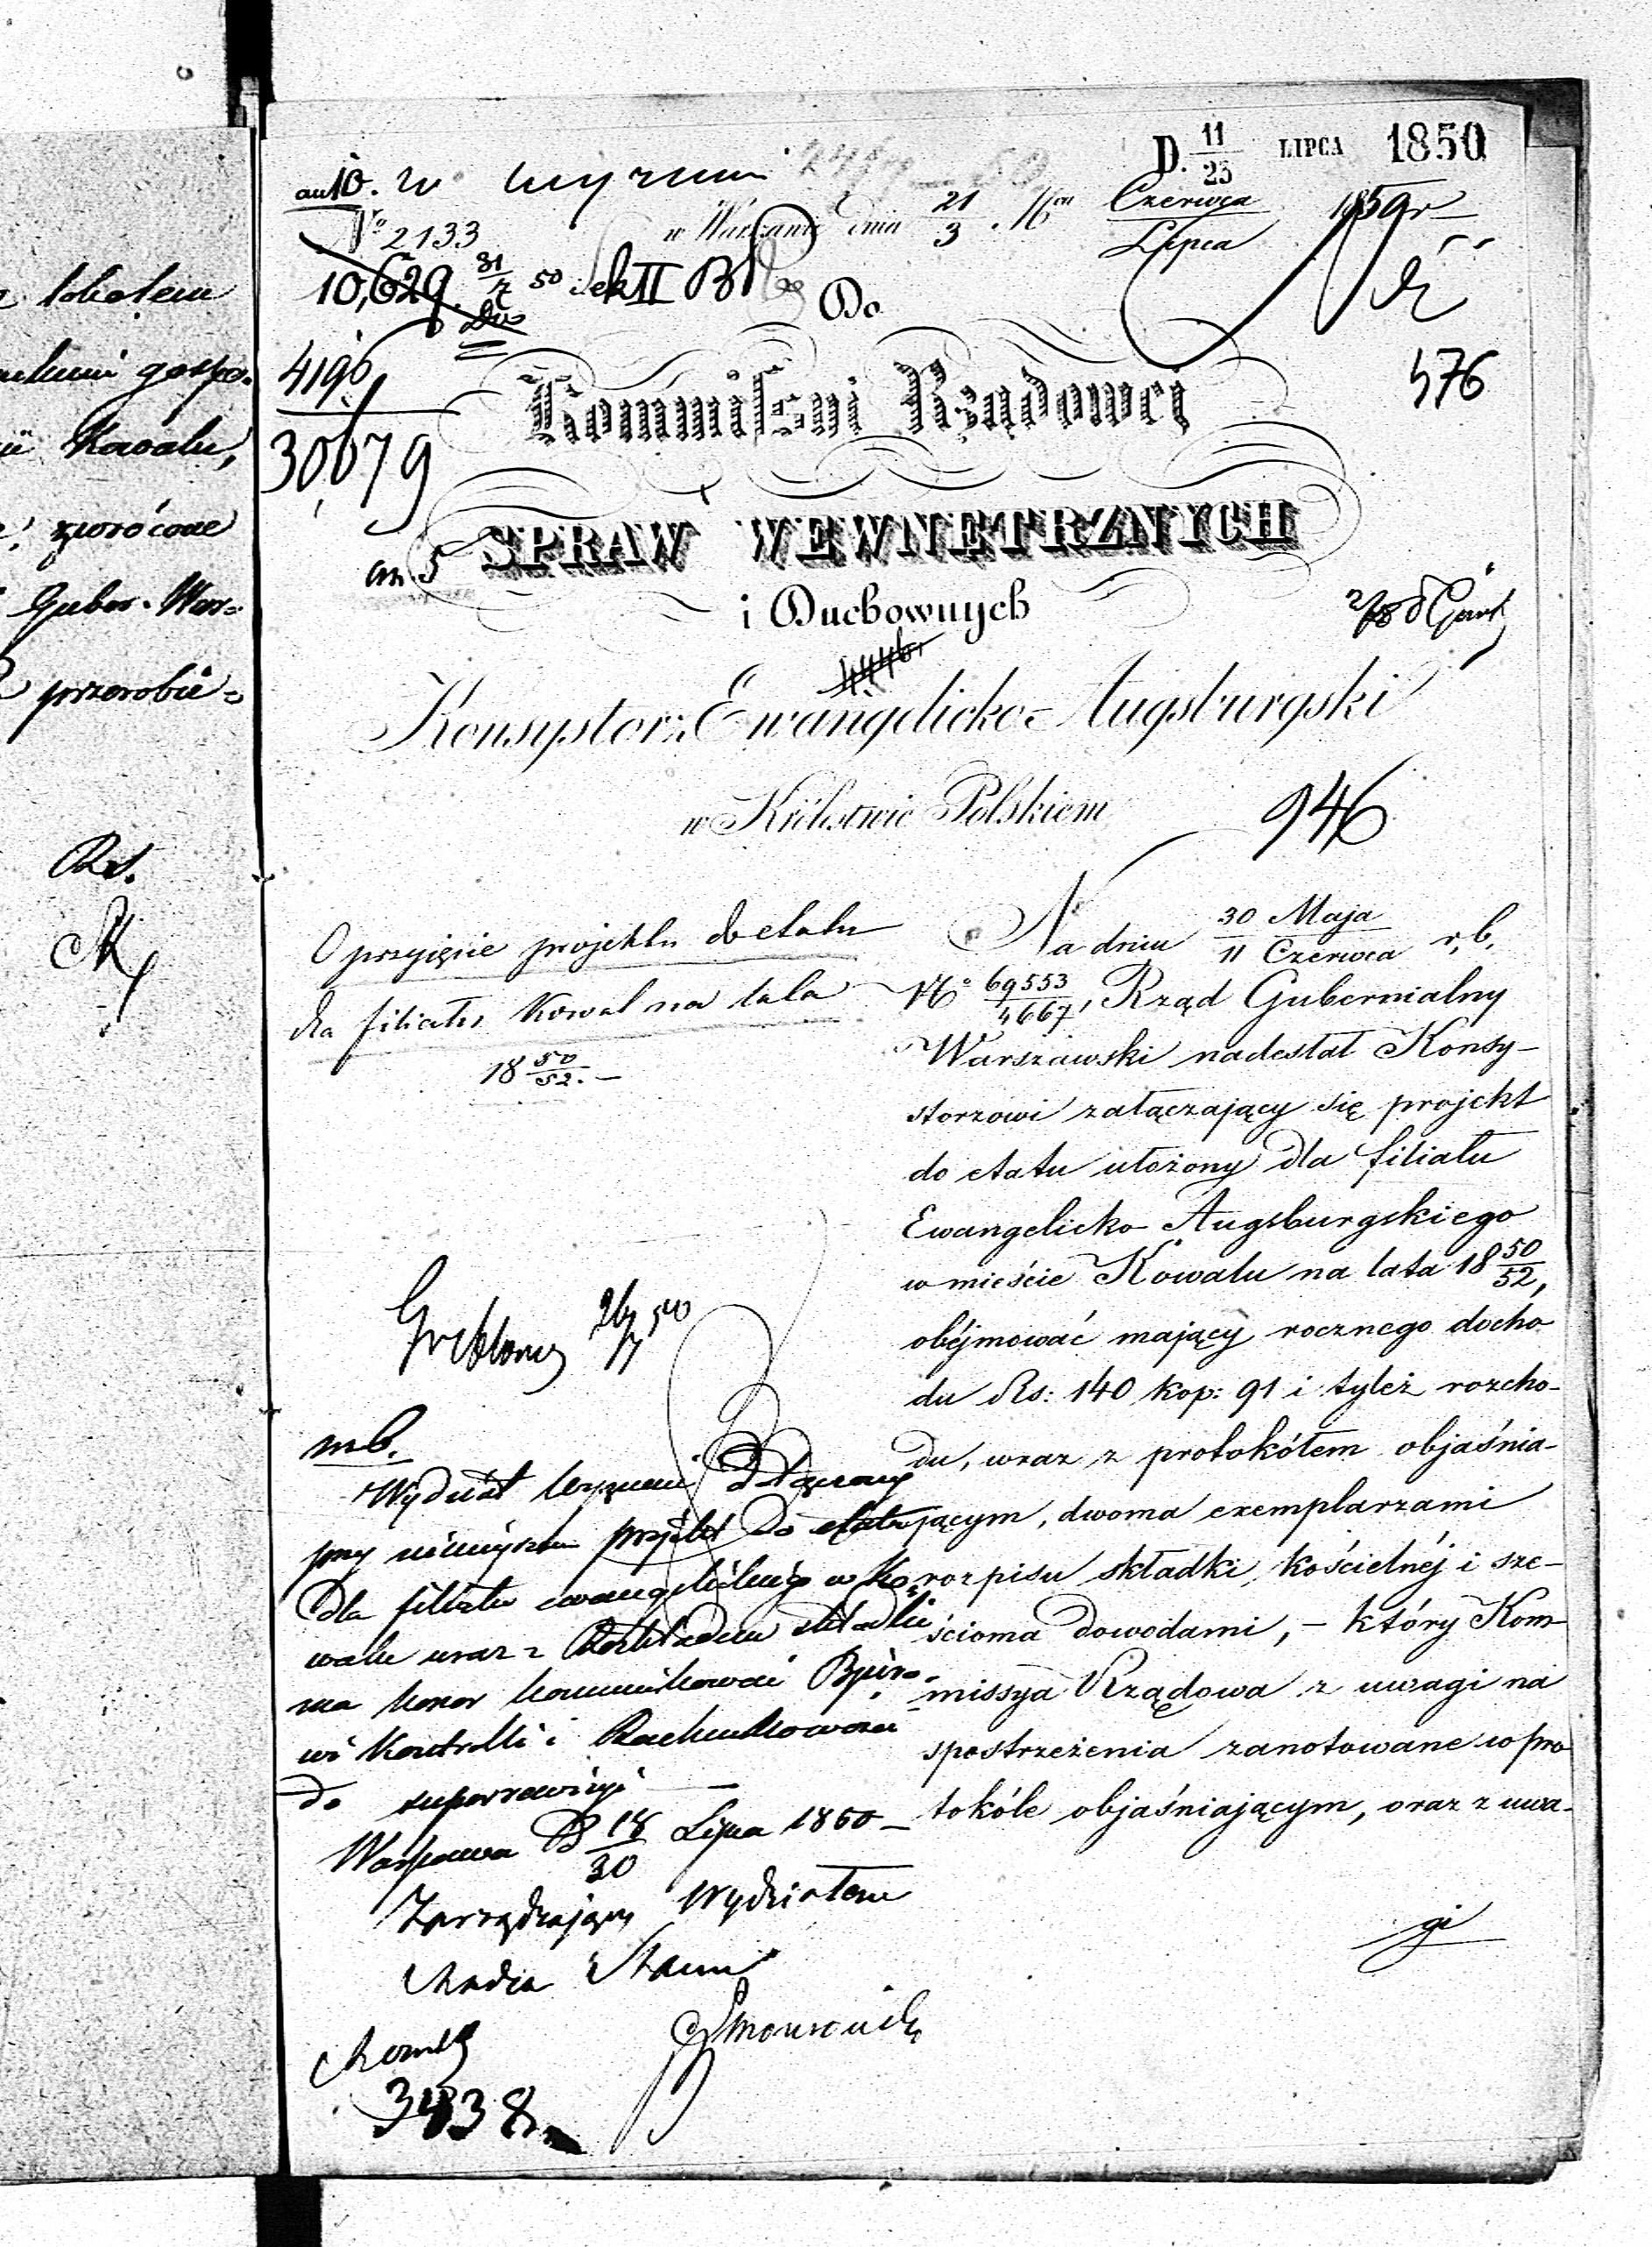 łobotem
gospo-
Kowalu,
zwrócone
Guber. War=
przerobie=
Rs.
D. 11/23 LIPCA 1850
an 10. w
No 2133
w Warszawie dnia 21/3 Mca Czerwca/Lipca 1850 r
10,629 31/7 50 sek II B
Do
4196
30679
576
Kommissyi Rządowéj
an. 5
SPRAW WEWNĘTRZNYCH
i Duchownych
Konsystorz Ewangelicko-Augsburgski
w Królestwie Polskiem
946
O przyjęcie projektu do etatu
dla filiału Kowal na lata
18 50/52. –
Na dniu 30 Maja/11 Czerwca r. b.
No 69553/4667, Rząd Gubernialny
Warszawski nadesłał Konsy-
storzowi załączający się projekt
do etatu ułożony dla filiału
Ewangelicko-Augsburgskiego
w mieście Kowalu na lata 18 50/52,
obéjmować mający rocznego docho
du Rs: 140 kop: 91 i tyleż rozcho-
du, wraz z protokółem objaśnia-
jącym, dwoma exemplarzami
rozpisu składki kościelnéj i sze-
ścioma dowodami, – który Kom-
missya Rządowa z uwagi na
spostrzeżenia zanotowane w pro
tokóle objaśniającym, oraz z uwa-
gi
26/7 50
mb.
Wydział Wyznań Dołączony
przy niniejszem projekt do etatu
dla filiału ewangelickiego w Ko,
walu wraz z Rozkładem składki
ma honor kommunikować Bjuro-
wi Kontrolli i Rachunkowości
do superrewizyi –
Warszawa D 18/30 Lipca 1850 –
Zarządzający Wydziałem
Radca Stanu
3438